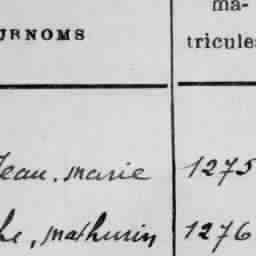 ma-
URNOMS
tricules
Jean. Marie 1275
he, Mathurin 1276